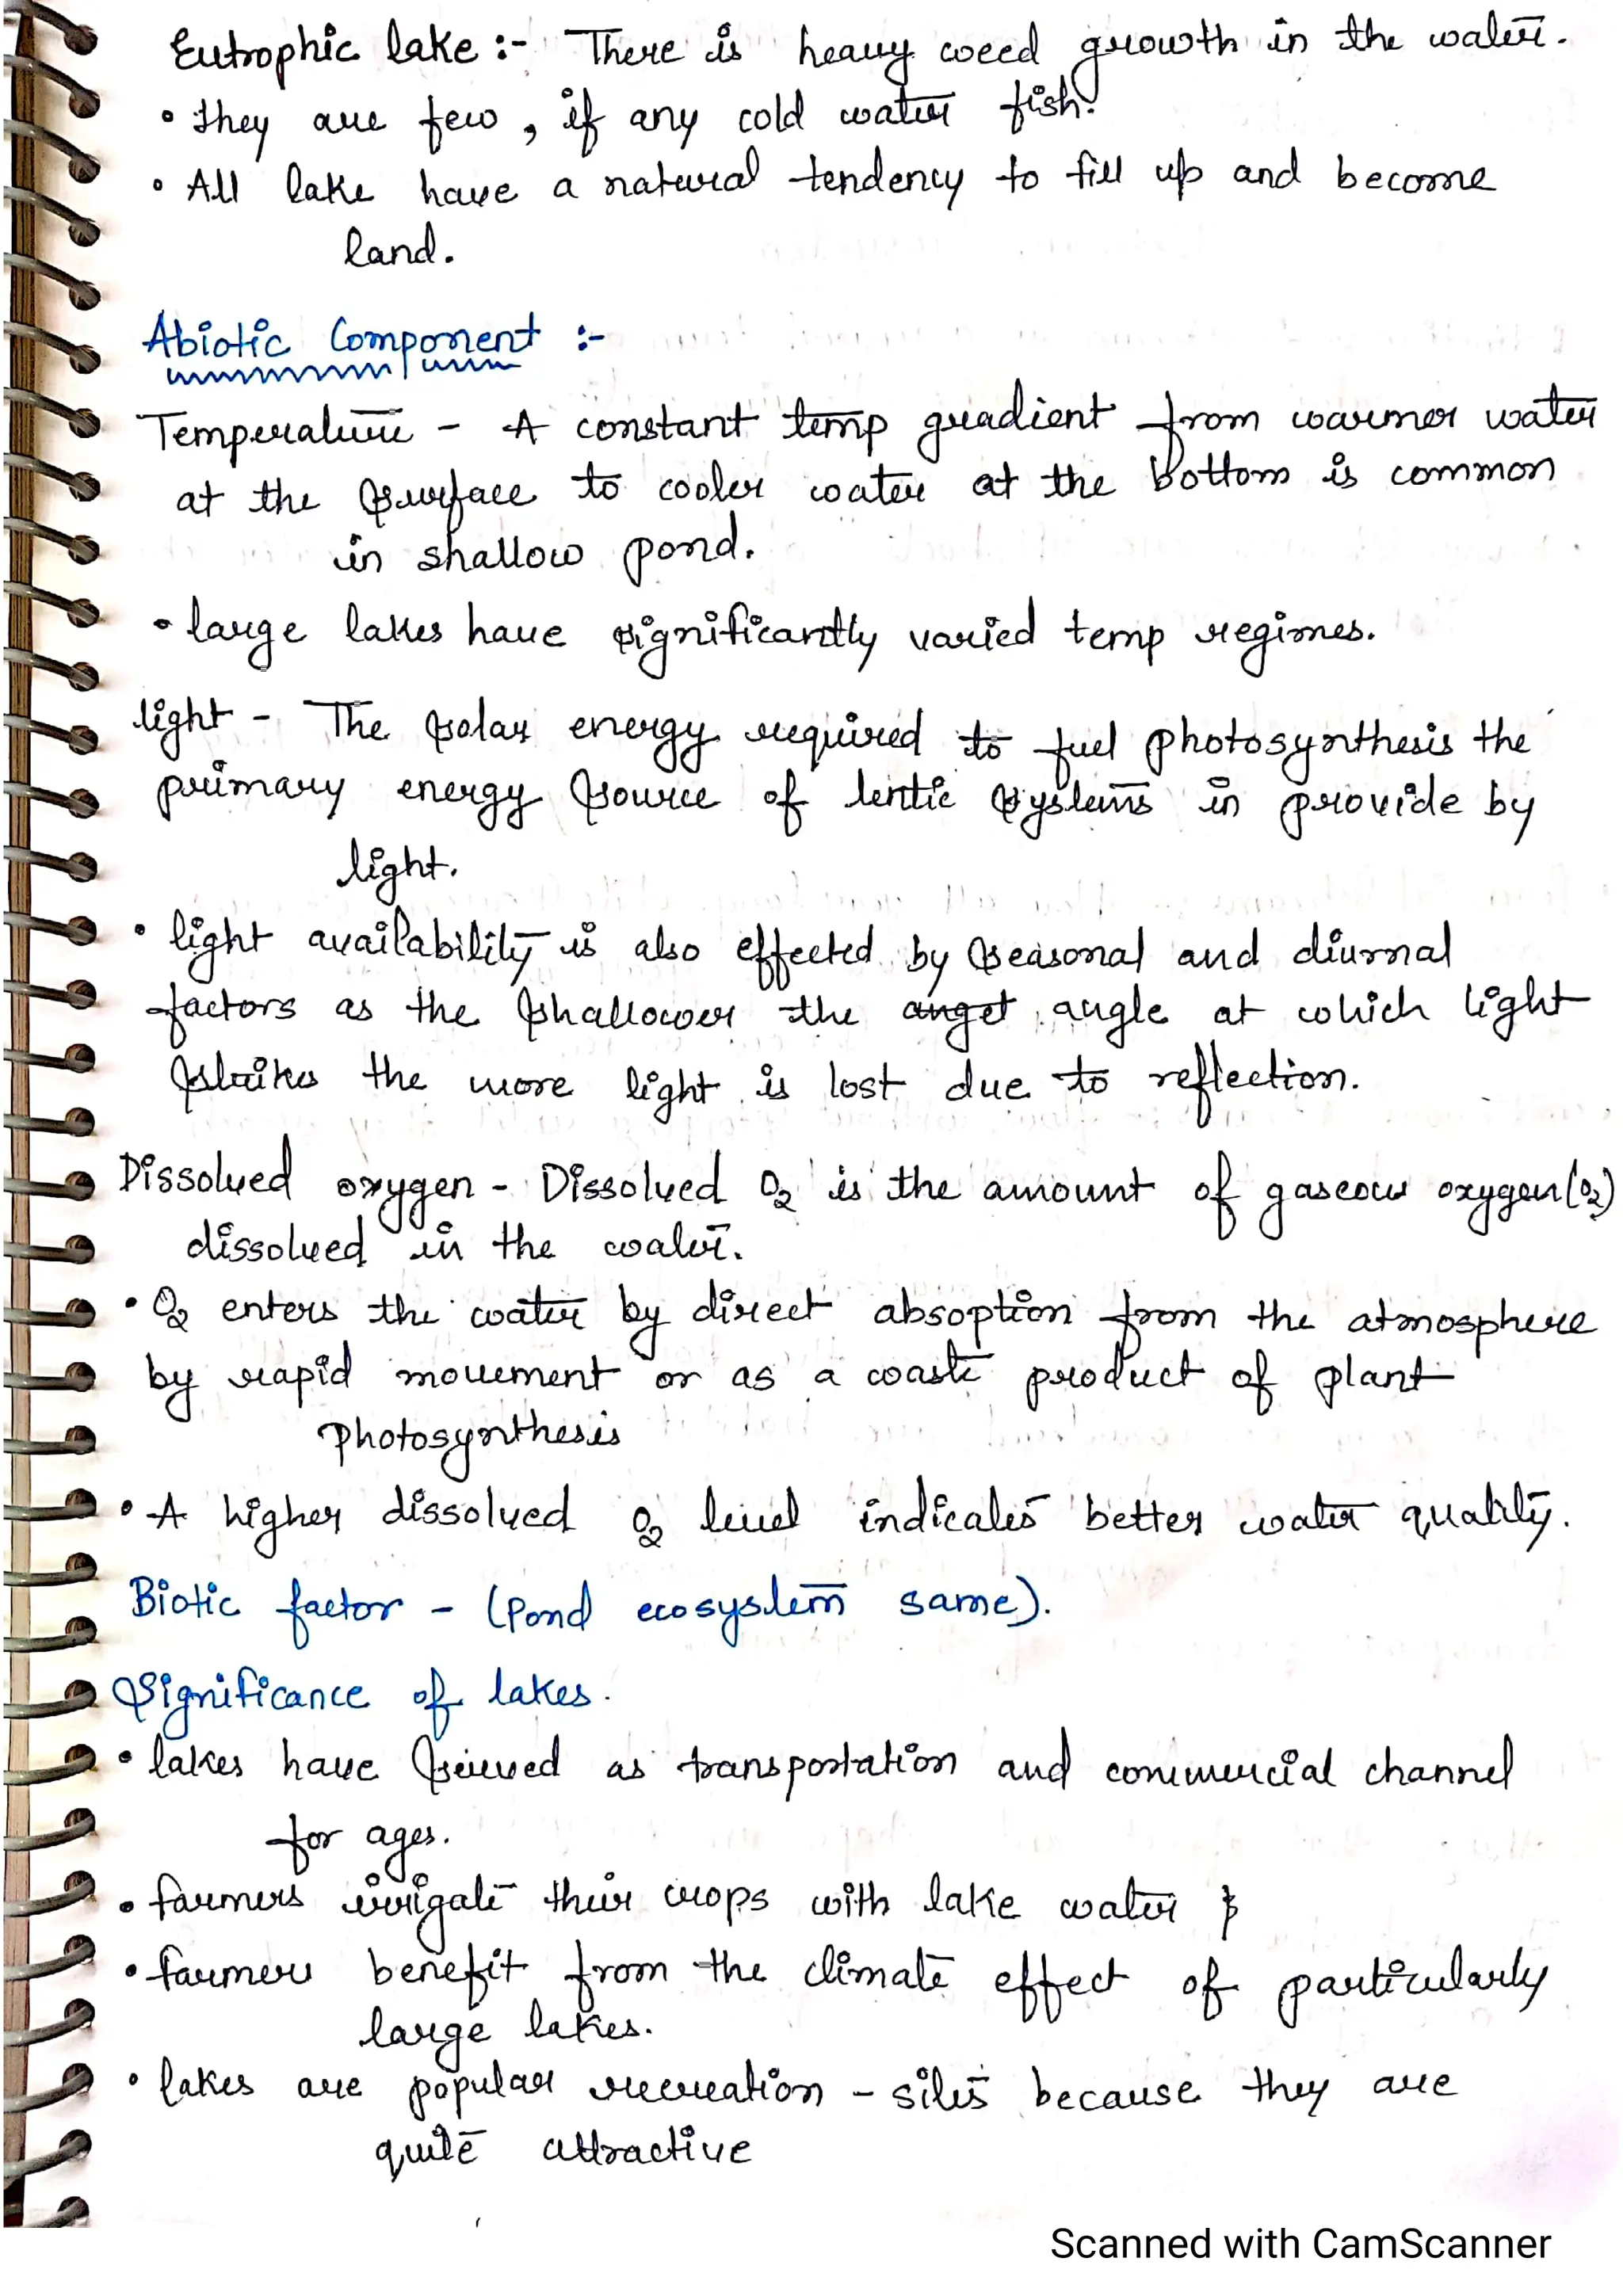 Eutrophic lake :- There is heavy weed growth in the water.
• they are few, if any cold water fish.
• All lake have a natural tendency to fill up and become
land.
Abiotic Component :-
Temperature - A constant temp gradient from warmer water
at the surface to cooler water at the bottom is common
in shallow pond.
• large lakes have significantly varied temp regimes.
light - The solar energy required to fuel photosynthesis the
primary energy source of lentic systems in provide by
light.
• light availability is also effected by seasonal and diurnal
factors as the shallower the anget angle at which light
strikes the more light is lost due to reflection.
Dissolved oxygen - Dissolved O2 is the amount of gaseous oxygen (O2)
dissolved in the water.
• O2 enters the water by direct absoption from the atmosphere
by rapid movement or as a waste product of plant
photosynthesis
• A higher dissolved O2 level indicates better water quality.
Biotic factor - (Pond ecosystem same).
Significance of lakes.
• lakes have served as transportation and commercial channel
for ages.
• farmers irrigate their crops with lake water
• farmers benefit from the climate effect of particularly
large lakes.
• lakes are popular recreation - sites because they are
quite attractive
Scanned with CamScanner